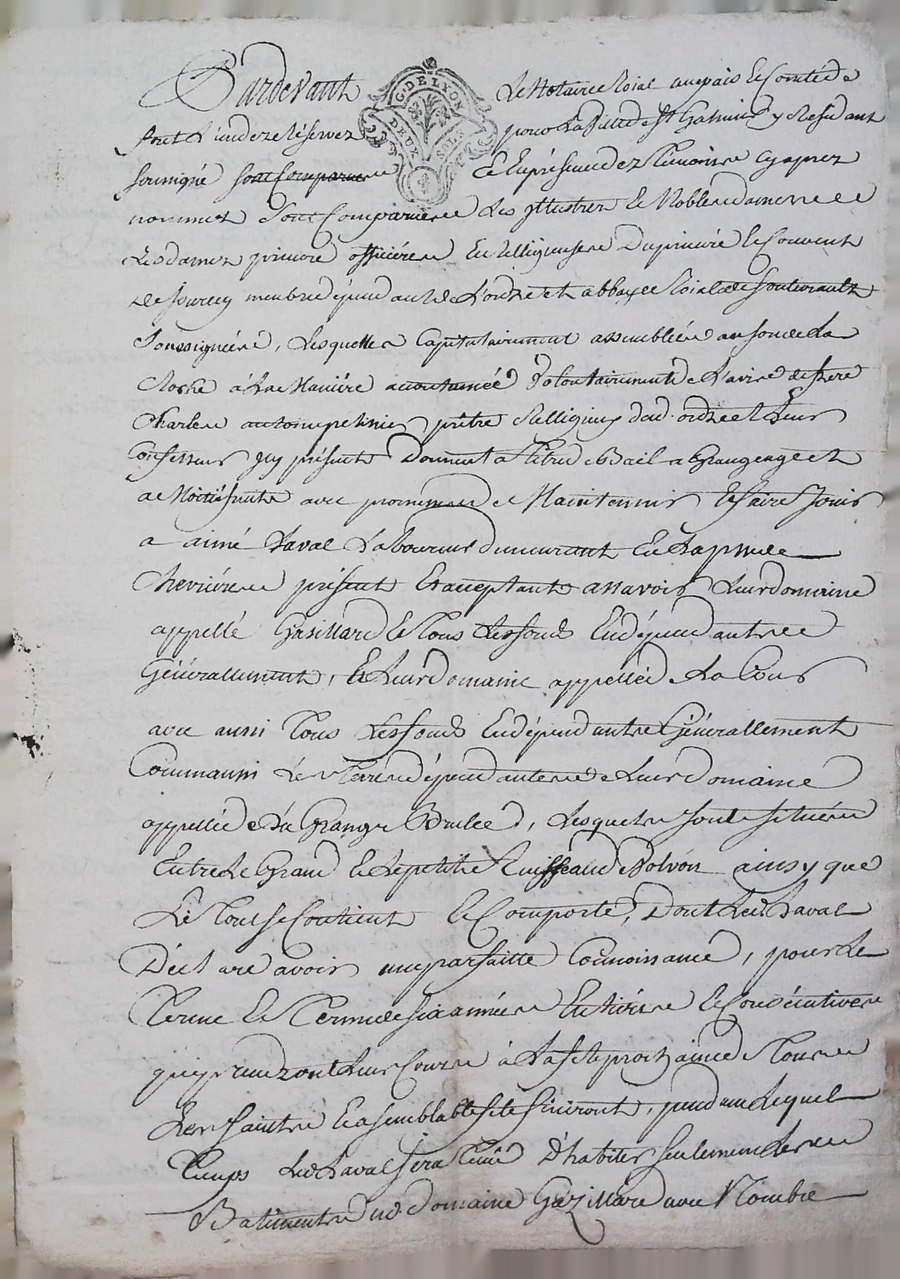 Pardevant
G. DE LYON
DEUX SOLS
Le Notaire Roial au païs & Comté de
pour la Ville de St Galmier y Residant
soussigné sont comparue en présence des Témoins cy aprez
nommez sont Comparües Les Illustres & Nobles dames
Les dames prieure officiéres Et Relligieuses du prieuré & Couvent
de Jourcey membre dépendant de L'ordre et abbaye Roialle de fontevrault
Soussignées, Lesquelles Capitulairement assemblées au son de La
Cloche à La Maniére accoutumée Volontairement de L'avis de frere
Charles prêtre Relligieux dud. ordre et Leur
Confesseur icy présent Donnent à Titre de Bail a Grangeage et
a Moitié fruits avec promesse de Maintenir & faire Jouir
a aimé Laval Laboureur demeurant En La psse de
Chevriéres présent & acceptant assavoir Leur domaine
appellé Gasillard & Tous Les fonds En dépendants
Générallement, & Leur Domaine appellé La Cour
avec aussi Tous Les fonds En dépendants Générallement
Comm'aussi Les Terres dépendantes de Leur Domaine
appellé La Grange Brulée, Lesquelles sont situées
Entre Le Grand & Le petit Ruisseau de Volvon ainsy que
Le Tout se Contient & Comporte, Dont Led. Laval
Déclare avoir une parfaitte Connoissance, pour Le
Terme & Terme de six années Entiéres & Consécutives
qui prendront Leur Cours à La fete prochaine de Tous
Les Saints & a semblable fete finiront, pendant Lequel
Temps Led. Laval sera Tenu D'habiter seulement Les
Batiments dud. domaine Gazillard avec Nombre